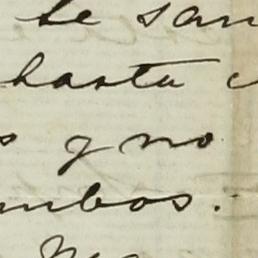 te san
hasta
s y no
mbos.